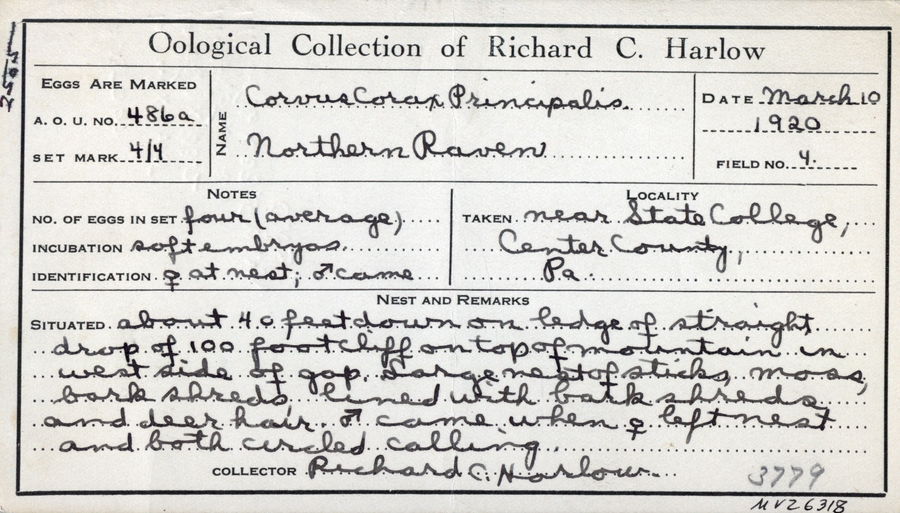 Oological Collection of Richard C. Harlow
EGGS ARE MARKED
A. O. U. NO. 486a
SET MARK 4/4
NAME
Corvus Corax Principalis
Northern Raven
DATE March 10
1920
FIELD NO. 4.
NOTES
NO. OF EGGS IN SET four (average)
INCUBATION soft embryos
IDENTIFICATION ♀ at nest; ♂ came
LOCALITY
TAKEN near State College,
Center County,
Pa.
NEST AND REMARKS
SITUATED about 40 feet down on ledge of straight
drop of 100 foot cliff on top of mountain in
west side of gap. Large nest of sticks, moss,
bark shreds lined with bark shreds
and deer hair. ♂ came when ♀ left nest
and both circled calling.
COLLECTOR Richard C. Harlow
3779
MVZ6318